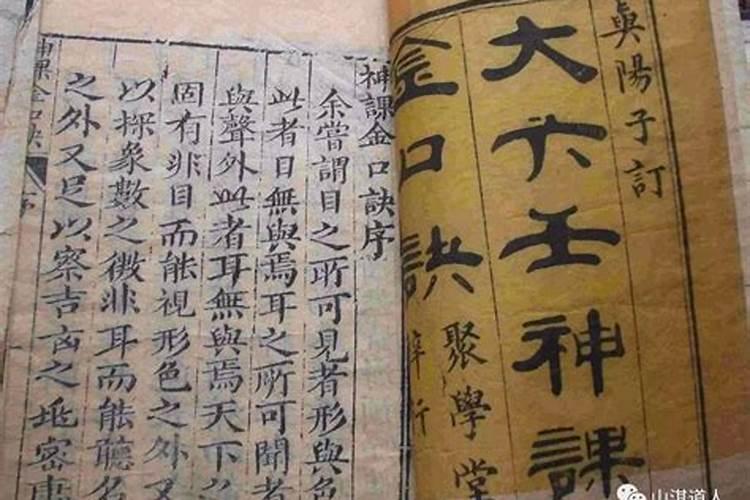 眞陽子訂
大六壬神課
金口訣
聚學堂
梓行
神課金口訣序
余嘗謂目之所可見者形與色
此者目無與焉耳之所可聞者
與聲外此者耳無與焉天下
固有非目而能視形色之外又
以探象數之微非耳而能聽名
之外又足以察吉凶之兆審
神課金口訣
序
山淇道人